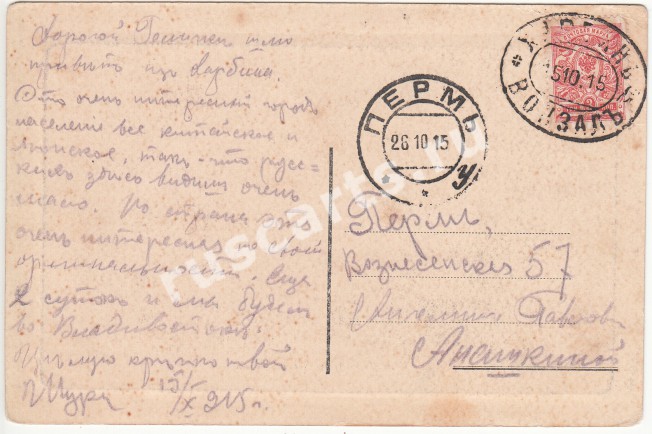 Дорогой Геничка шлю
привѣтъ изъ Харбина.
Это очень интересный городъ
населеніе все китайское и
Японское, такъ что рус-
скихъ здѣсь видишь очень
мало. Но страна это
очень интересная по своей
оригинальности. Еще
2 сутокъ и мы будемъ
во Владивостокѣ.
Цѣлую крѣпко твой
Шура 15/X 915 г.
ХАРБИНЪ
15 10 15
ВОКЗАЛЪ
ПЕРМЬ
26 10 15
у
Пермь,
Вознесенская 57
Павловнѣ
Аничкиной
rusearts.ru